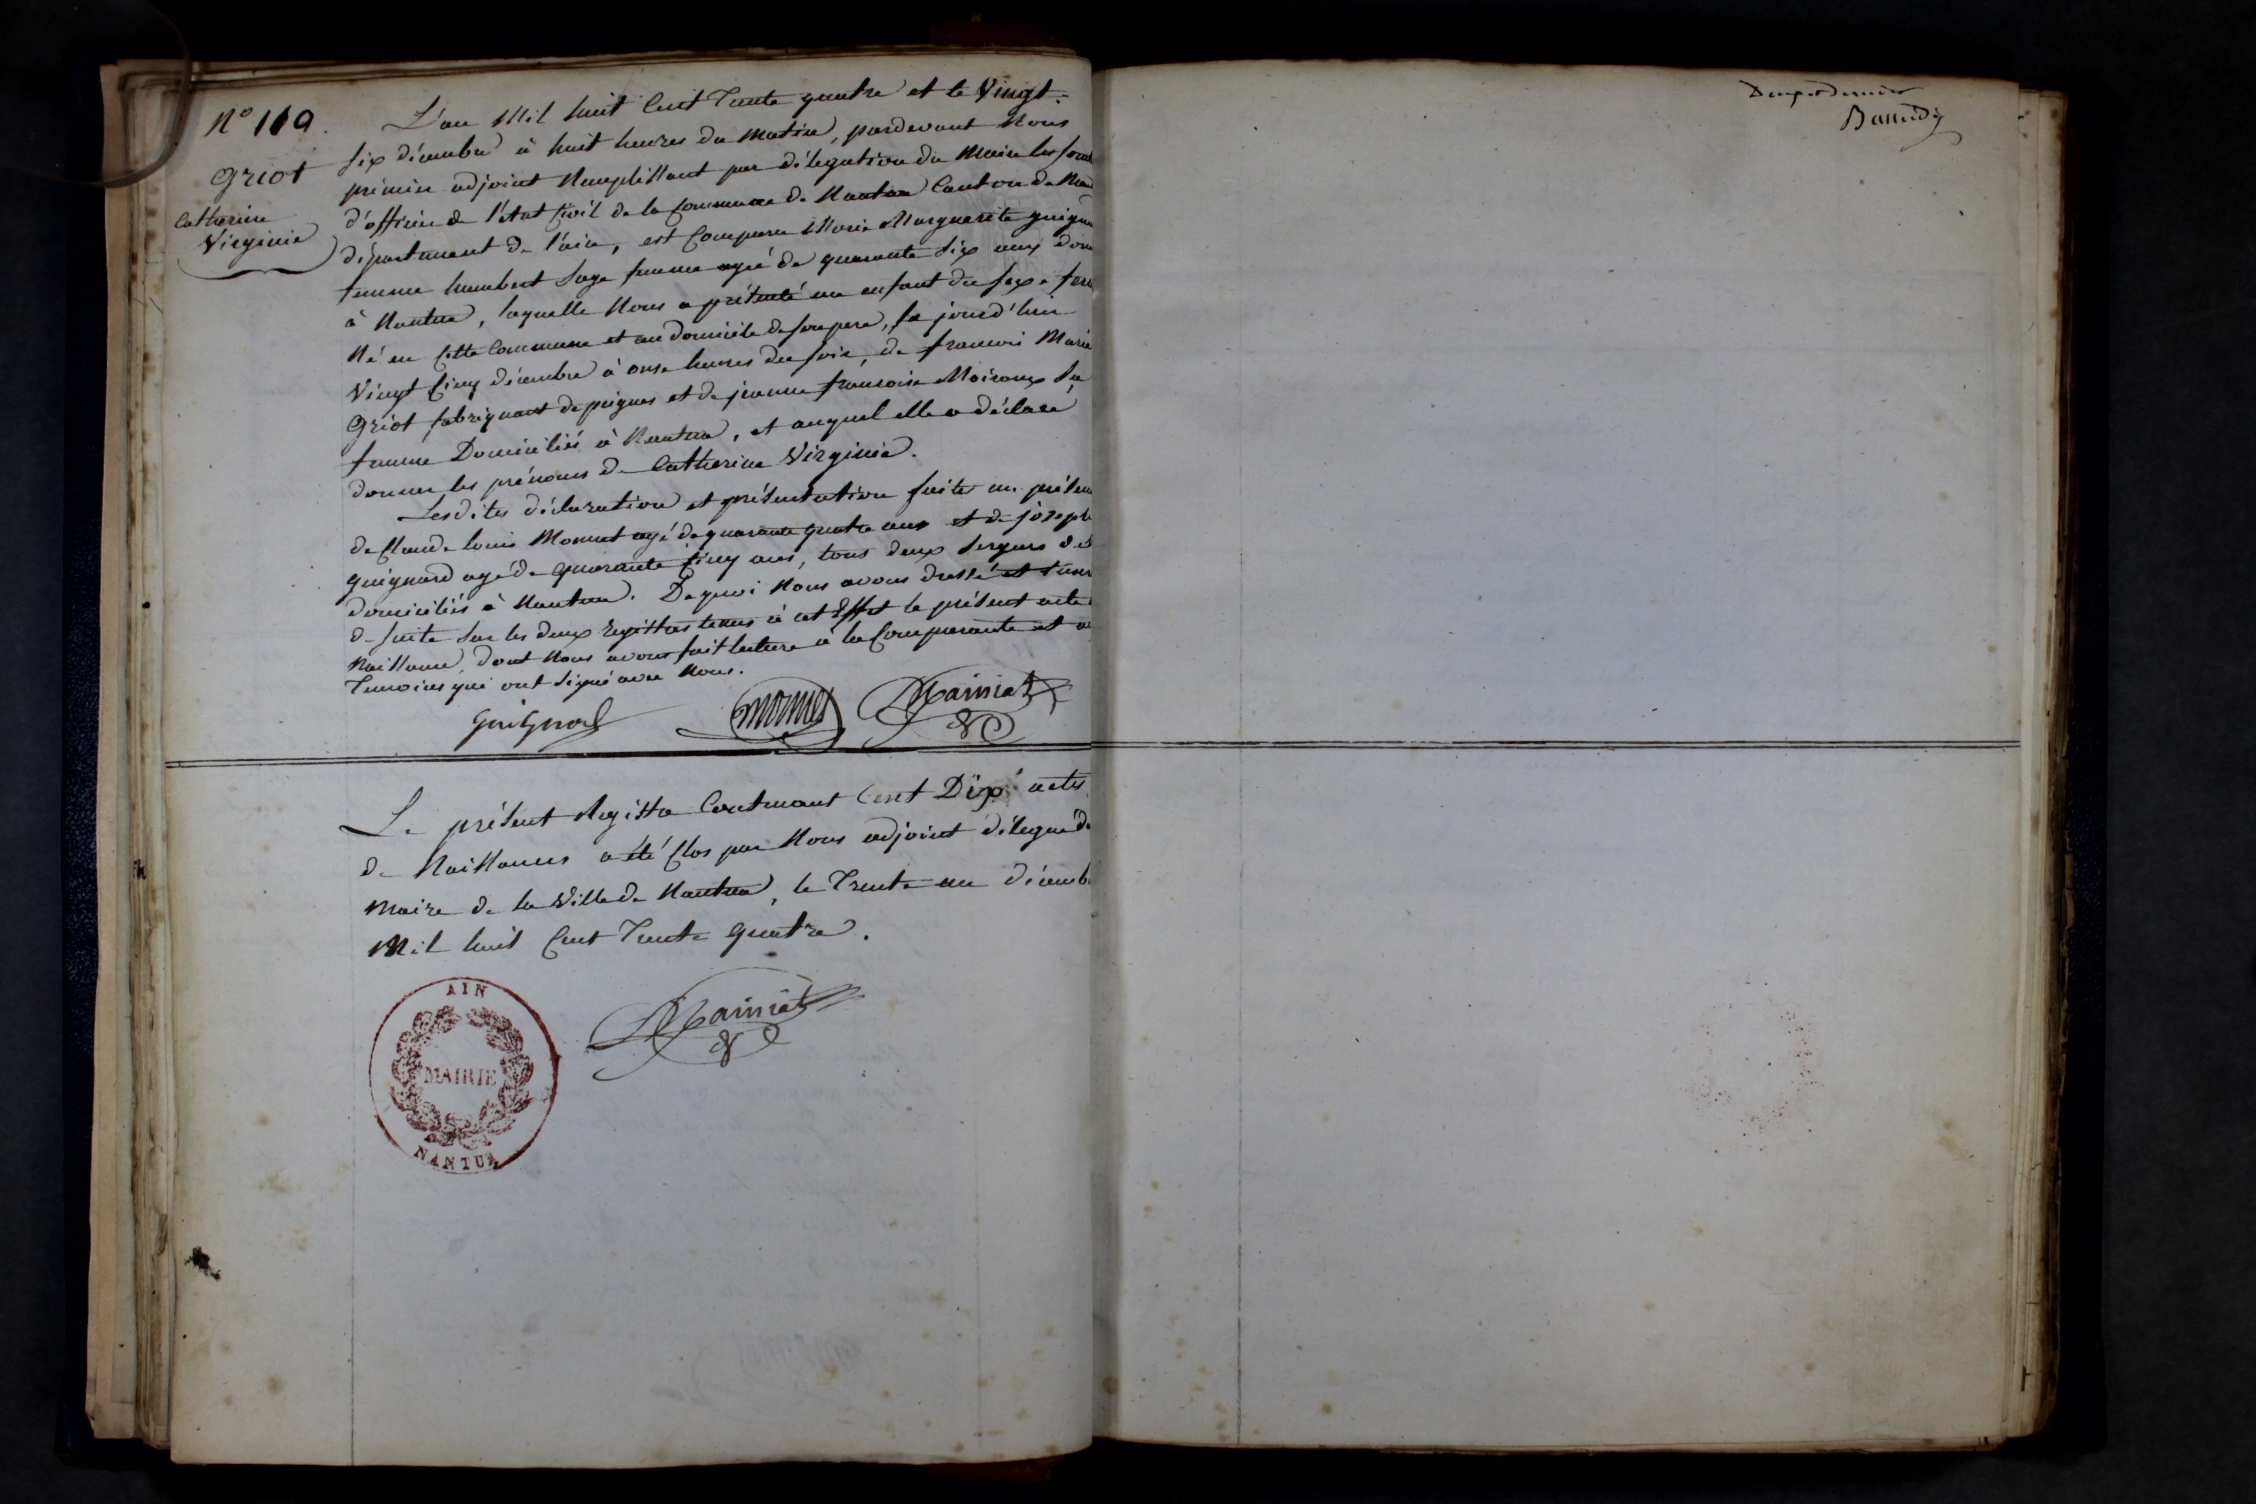 N° 119.
Griot
Catherine
Virginie
L'an Mil huit Cent Trente quatre et le Vingt-
six décembre à huit heures du matin, pardevant Nous
prémier adjoint Remplissant par délégation du Maire les fonc
d'officier de l'état Civil de la Commune de Nantua Canton de Nan
département de l'ain, est Comparu Marie Marguerite guigna
femme humbert sage femme agée de quarante six ans dom
à Nantua, laquelle Nous a présenté un enfant du sexe fem
Né en Cette Commune et au domicile de son pere, le jourd'hui
Vingt Cinq décembre à onze heures du soir, de francois Marie
Griot fabriquant de peignes et de jeanne francoise Moiroux sa
femme Domiciliés à Nantua, et auquel elle a déclaré
donner les prénoms de Catherine Virginie.
Lesdites déclaration et présentation faites en présen
de Claude louis Monnet agé de quarante quatre ans et de joseph
guignard agé de quarante Cinq ans, tous deux sergens de
domiciliés à Nantua. De quoi Nous avons dressé et
de suite sur les deux Registres tenus à cet Effet le présent acte
Naissance, dont Nous avons fait lecture à la Comparante et a
Temoins qui ont signé avec Nous.
Guignard
monnet
Mainiat
Le présent Registre Contenant Cent Dix actes
de Naissances a été Clos par Nous adjoint délégué d
Maire de la Ville de Nantua, le Trente un décemb
Mil huit Cent Trente quatre.
Mainiat
AIN
MAIRIE
NANTUA